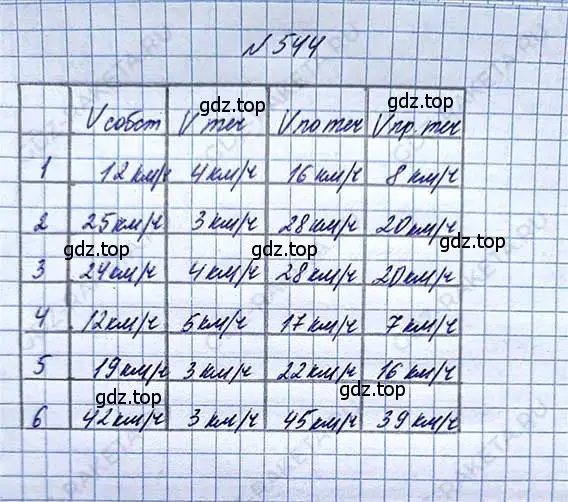 № 544
gdz.top gdz.top
Vсобст Vтеч Vпо теч Vпр. теч
gdz.top gdz.top
1 12 км/ч 4 км/ч 16 км/ч 8 км/ч
2 25 км/ч 3 км/ч 28 км/ч 20 км/ч
gdz.top gdz.top
3 24 км/ч 4 км/ч 28 км/ч 20 км/ч
gdz.top gdz.top
4 12 км/ч 5 км/ч 17 км/ч 7 км/ч
5 19 км/ч 3 км/ч 22 км/ч 16 км/ч
gdz.top gdz.top
6 42 км/ч 3 км/ч 45 км/ч 39 км/ч